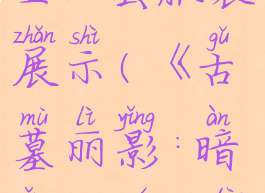 zhǎn shì gǔ
展示(《古
mù lì yǐng àn
墓丽影:暗